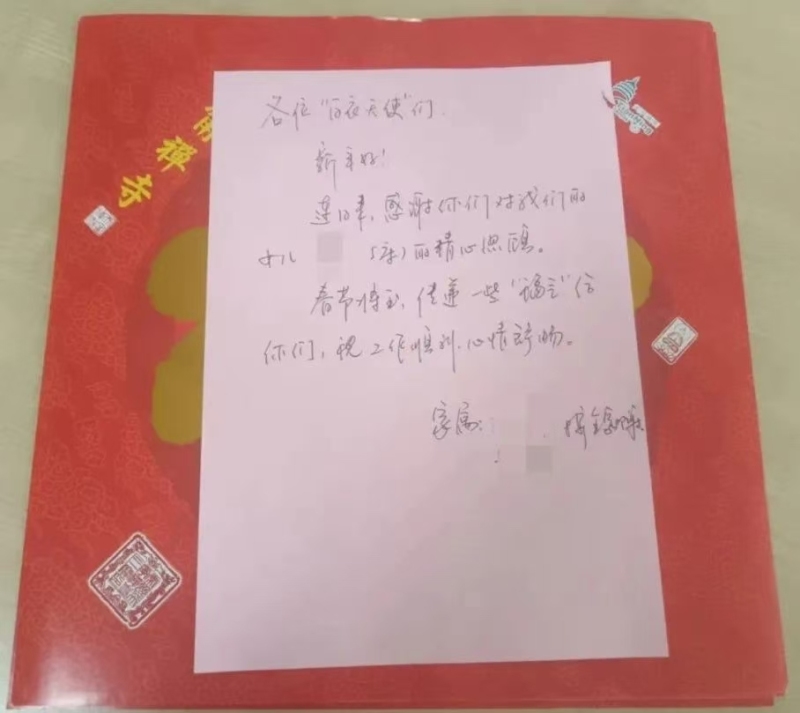 各位“白衣天使”们.
新年好!
连日来,感谢你们对我们的
女儿 (5床)的精心照顾。
春节将至,传递一些“福气”给
你们,祝工作顺利.心情舒畅。
家属:
禅寺